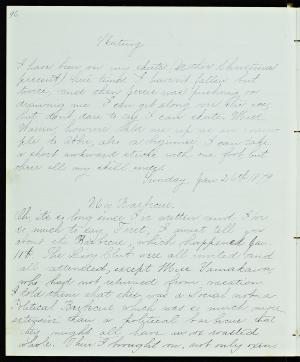 46
Skating
I have been on my skates, (Mother's Christmas
present) five times. I haven't fallen but
twice, and then Jessie was pushing or
drawing me. I can get along over the ice,
but don't dare to say I can skate. Will
Warren however held me up as an exam-
ple to Abbie, also a beginner. I can take
a short awkward stroke with one foot but
there all my skill ends.
Sunday, Jan 26th 1879
My Barbecue.
Oh, its so long since I've written and I've
so much to say. First, I must tell you
about the Barbecue, which happened Jan
10th. The Ivory Club were all invited and
all attended, except Miss Yamakawa,
who had not returned from vacation
I told them that this was a Social not a
Political Barbecue which was so much more
extensive than a political barbecue that
they might all share in our roasted
Then I brought on, not only oxen